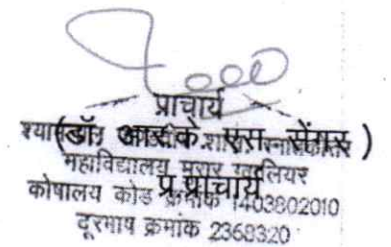 प्राचार्य
(डॉ. आर.के. एस. सेंगर)
महाविद्यालय मुरार ग्वालियर
प्र.प्राचार्य
कोषालय कोड क्रमांक 1403802010
दूरभाष क्रमांक 2368320